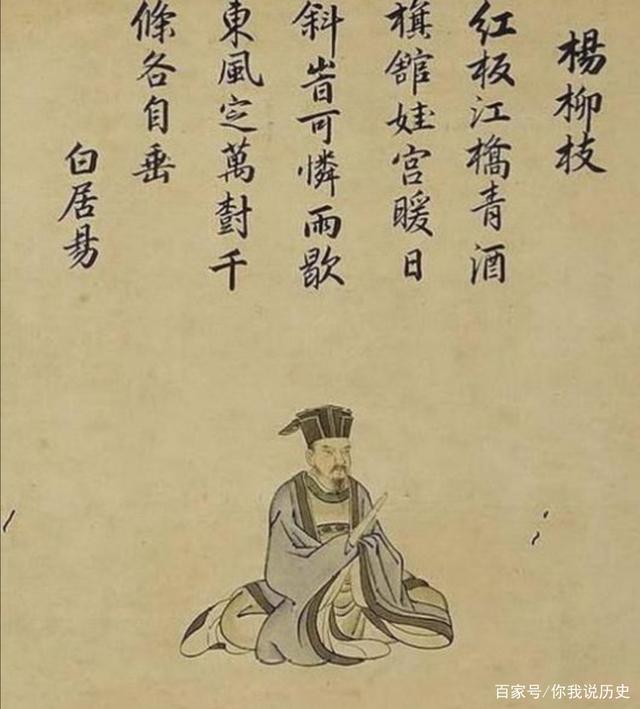 楊柳枝
红板江橋青酒
旗舘娃宫暖日
斜旹可憐雨歇
東風定萬樹千
條各自垂
白居易
百家号/你我说历史